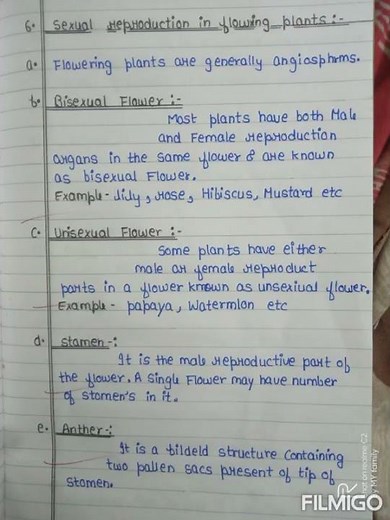 6. Sexual reproduction in flowing plants:-
a. Flowering plants are generally angiosphrms.
b. Bisexual Flower :-
Most plants have both Male
and Female reproduction
organs in the same flower & are known
as bisexual Flower.
Example - lily, rose, Hibiscus, Mustard etc
c. Unisexual Flower :-
Some plants have either
male or female reproduct
parts in a flower known as unsexiual flower.
Example - papaya, Watermlon etc
d. stamen -:
It is the male reproductive part of
the flower. A single Flower may have number
of stamen's in it.
e. Anther -:
It is a bildeld structure containing
two pallen sacs present of tip of
stamen.
MY family
FILMIGO